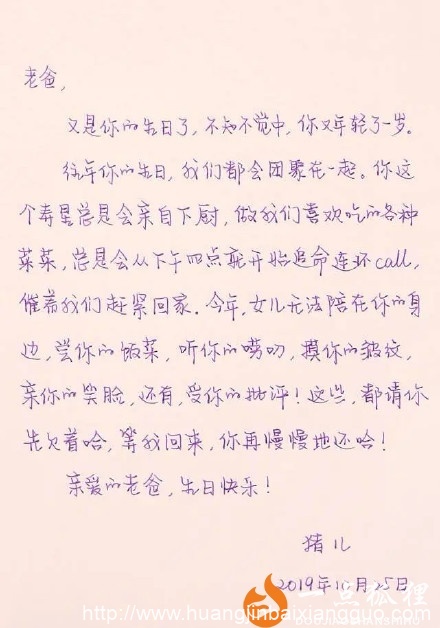 老爸，
又是你的生日了，不知不觉中，你又年轻了一岁。
往年你的生日，我们都会团聚在一起。你这
个寿星总是会亲自下厨，做我们喜欢吃的各种
菜菜，总是会从下午四点就开始追命连环call，
催着我们赶紧回家。今年，女儿无法陪在你的身
边，尝你的饭菜，听你的唠叨，摸你的皱纹，
亲你的笑脸，还有，受你的批评！这些，都请你
先欠着哈，等我回来，你再慢慢地还哈！
亲爱的老爸，生日快乐！
猪儿
2019年10月25日
一点狐狸
http://www.huangjinbaixiangguo.com/